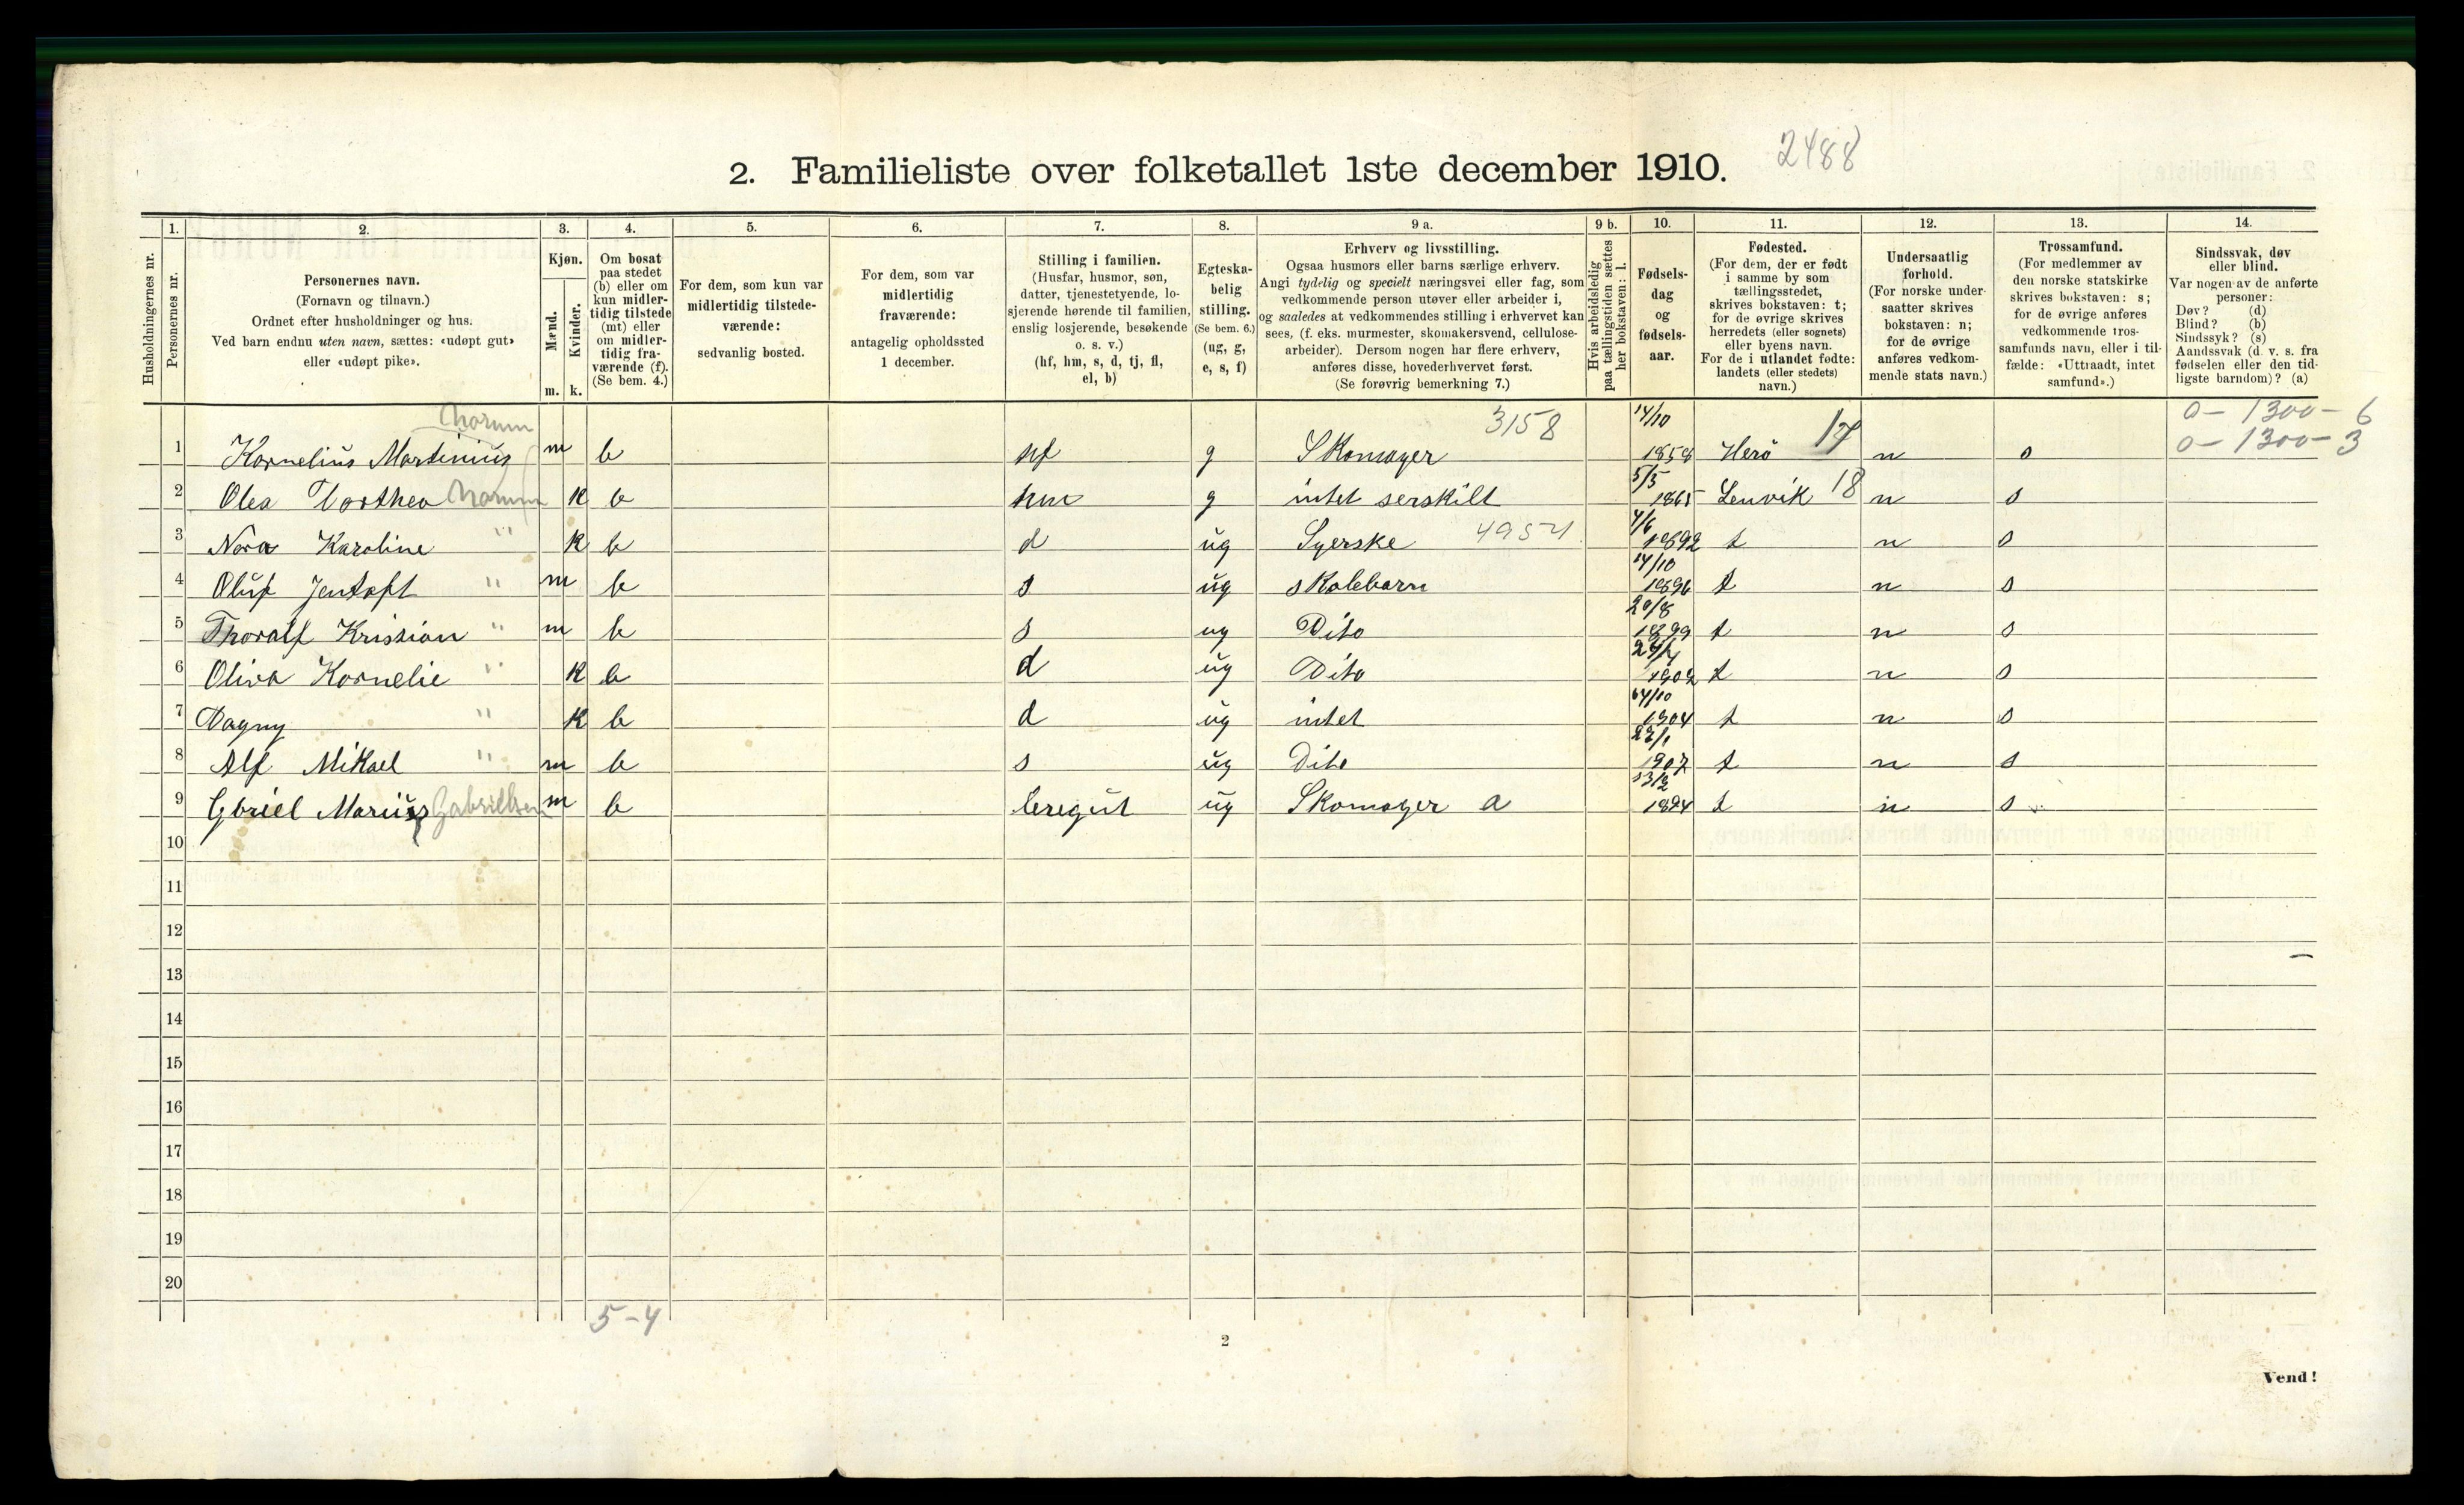 2. Familieliste over folketallet 1ste december 1910. 2488
1. 2. 3. 4. 5. 6. 7. 8. 9 a. 9 b. 10. 11. 12. 13. 14.
Husholdningernes nr.
Personernes nr.
Personernes navn.
(Fornavn og tilnavn.)
Ordnet efter husholdninger og hus.
Ved barn endnu uten navn, sættes: «udøpt gut»
eller «udøpt pike».
Kjøn.
Mænd.
Kvinder.
m. k.
Om bosat
paa stedet
(b) eller om
kun midler-
tidig tilstede
(mt) eller
om midler-
tidig fra-
værende (f).
(Se bem. 4.)
For dem, som kun var
midlertidig tilstede-
værende:
sedvanlig bosted.
For dem, som var
midlertidig
fraværende:
antagelig opholdssted
1 december.
Stilling i familien.
(Husfar, husmor, søn,
datter, tjenestetyende, lo-
sjerende hørende til familien,
enslig losjerende, besøkende
o. s. v.)
(hf, hm, s, d, tj, fl,
el, b)
Egteska-
belig
stilling.
(Se bem. 6.)
(ug, g,
e, s, f)
Erhverv og livsstilling.
Ogsaa husmors eller barns særlige erhverv.
Angi tydelig og specielt næringsvei eller fag, som
vedkommende person utøver eller arbeider i,
og saaledes at vedkommendes stilling i erhvervet kan
sees, (f. eks. murmester, skomakersvend, cellulose-
arbeider). Dersom nogen har flere erhverv,
anføres disse, hovederhvervet først.
(Se forøvrig bemerkning 7.)
Hvis arbeidsledig
paa tællingstiden sættes
her bokstaven: l.
Fødsels-
dag
og
fødsels-
aar.
Fødested.
(For dem, der er født
i samme by som
tællingsstedet,
skrives bokstaven: t;
for de øvrige skrives
herredets (eller sognets)
eller byens navn.
For de i utlandet fødte:
landets (eller stedets)
navn.)
Undersaatlig
forhold.
(For norske under-
saatter skrives
bokstaven: n;
for de øvrige
anføres vedkom-
mende stats navn.)
Trossamfund.
(For medlemmer av
den norske statskirke
skrives bokstaven: s;
for de øvrige anføres
vedkommende tros-
samfunds navn, eller i til-
fælde: «Uttraadt, intet
samfund».)
Sindssvak, døv
eller blind.
Var nogen av de anførte
personer:
Døv? (d)
Blind? (b)
Sindssyk? (s)
Aandssvak (d. v. s. fra
fødselen eller den tid-
ligste barndom)? (a)
Norum 3158 14/10 0 - 1300 - 6
1 Kornelius Martinius m b hf g Skomager 1858 Herö 17 n s 0 - 1300 - 3
5/5
2 Olea Dorthea Norum k b hm g intet serskilt 1865 Lenvik 18 n s
4/6
3 Nora Karoline " k b d ug Syerske 1892 t n s
14/10
4 Oluf Jentoft " m b s ug skolebarn 1896 t n s
20/8
5 Thoralf Kristian " m b s ug Dito 1899 t n s
6 Oliva Kornelie " k b d ug Dito 1902 t n s
7 Dagny " k b d ug intet 1904 t n s
8 Alf Mikael " m b s ug Dito 1907 t n s
9 Gbriel Marius Gabrielsen m b leregut ug Skomager a 1894 t n s
10
11
12
13
14
15
16
17
18
19
20
5-4
2
Vend!